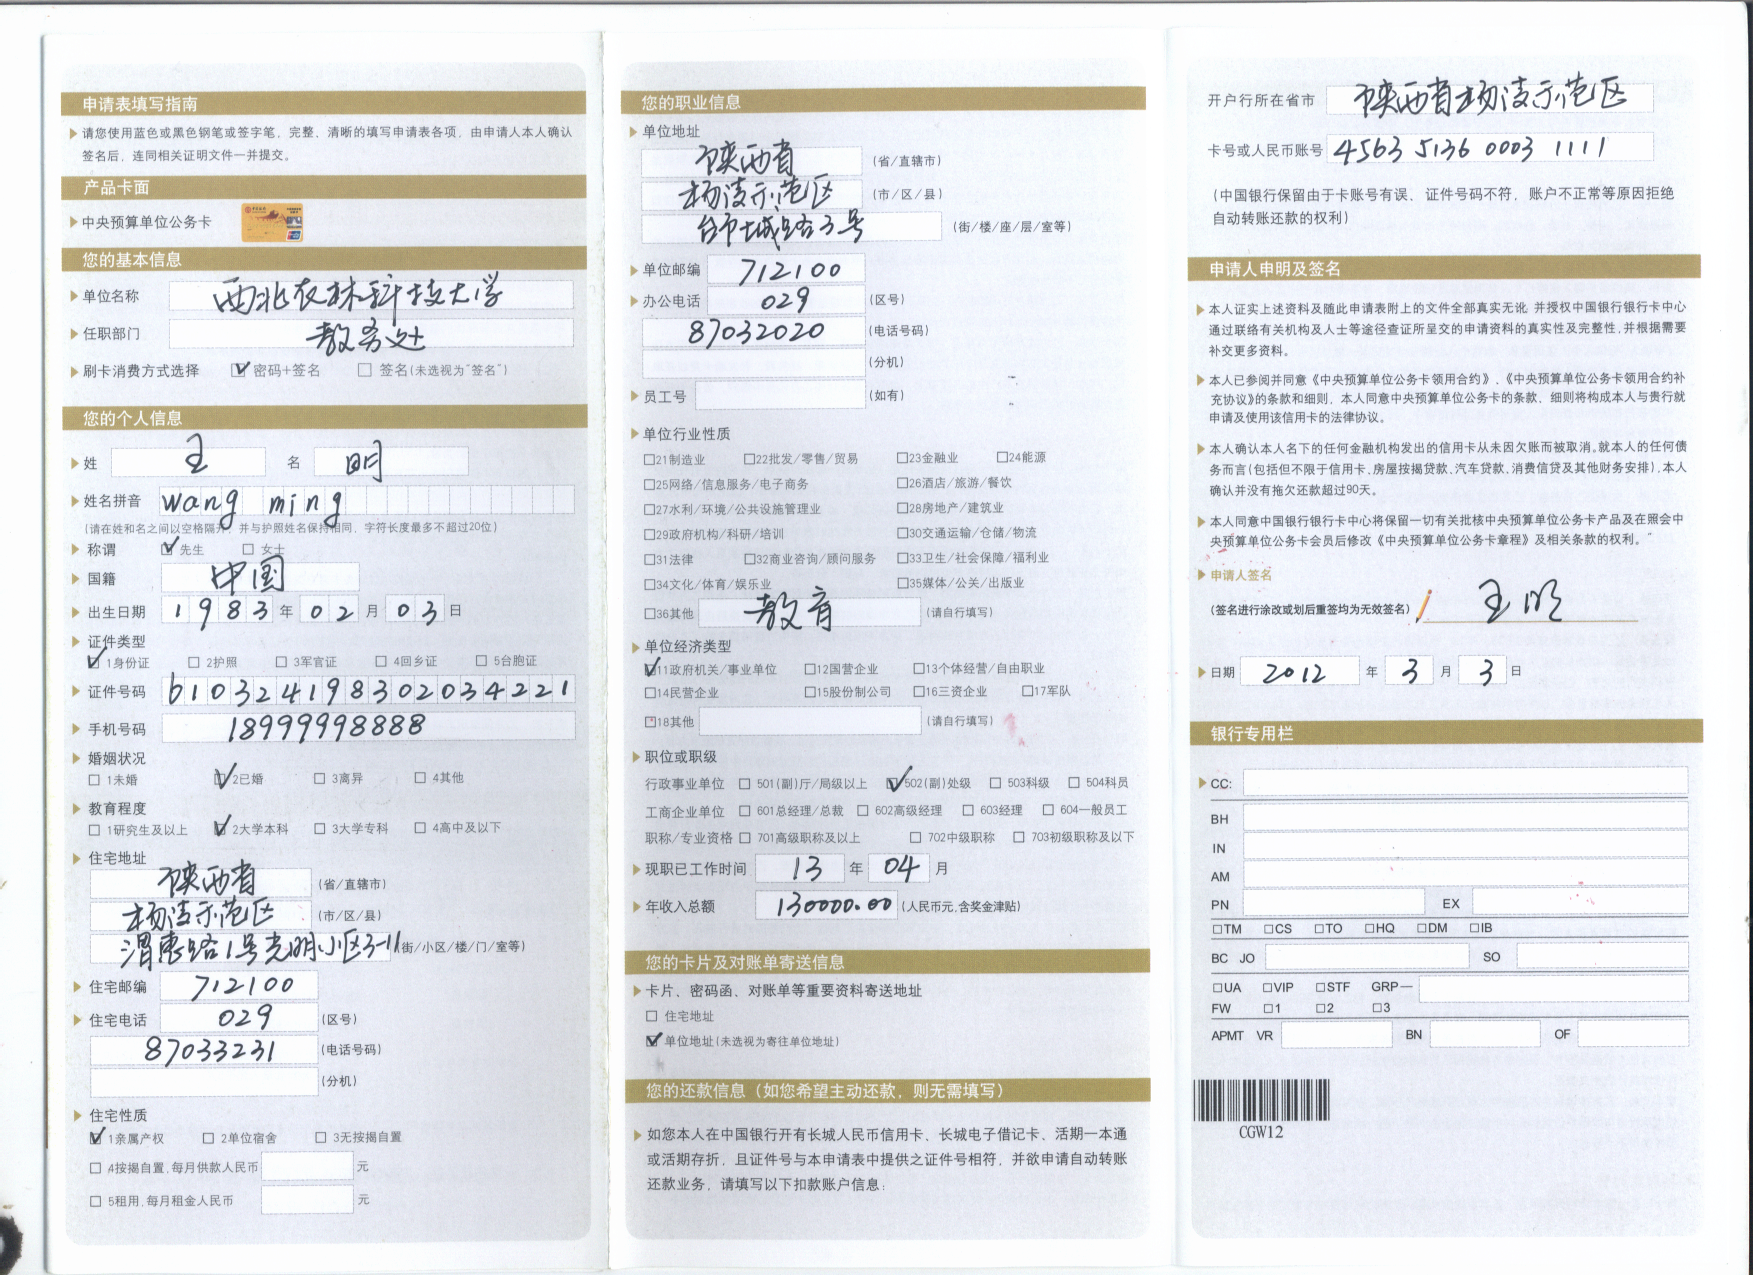 申请表填写指南
请您使用蓝色或黑色钢笔或签字笔，完整、清晰的填写申请表各项，由申请人本人确认
签名后，连同相关证明文件一并提交。
产品卡面
中央预算单位公务卡
您的基本信息
单位名称 西北农林科技大学
任职部门 教务处
刷卡消费方式选择 ☑密码+签名 □签名(未选视为“签名”)
您的个人信息
姓 王 名 明
姓名拼音 wang ming
(请在姓和名之间以空格隔开，并与护照姓名保持相同，字符长度最多不超过20位)
称谓 ☑先生 □女士
国籍 中国
出生日期 1983年02月03日
证件类型
☑1身份证 □2护照 □3军官证 □4回乡证 □5台胞证
证件号码 610324198302034221
手机号码 18999998888
婚姻状况
□1未婚 ☑2已婚 □3离异 □4其他
教育程度
□1研究生及以上 ☑2大学本科 □3大学专科 □4高中及以下
住宅地址
陕西省 (省/直辖市)
杨凌示范区 (市/区/县)
渭惠路1号光明小区3-11 (街/小区/楼/门/室等)
住宅邮编 712100
住宅电话 029 (区号)
87033231 (电话号码)
(分机)
住宅性质
☑1亲属产权 □2单位宿舍 □3无按揭自置
□4按揭自置,每月供款人民币 元
□5租用,每月租金人民币 元
您的职业信息
单位地址
陕西省 (省/直辖市)
杨凌示范区 (市/区/县)
邰城路3号 (街/楼/座/层/室等)
单位邮编 712100
办公电话 029 (区号)
87032020 (电话号码)
(分机)
员工号 (如有)
单位行业性质
□21制造业 □22批发/零售/贸易 □23金融业 □24能源
□25网络/信息服务/电子商务 □26酒店/旅游/餐饮
□27水利/环境/公共设施管理业 □28房地产/建筑业
□29政府机构/科研/培训 □30交通运输/仓储/物流
□31法律 □32商业咨询/顾问服务 □33卫生/社会保障/福利业
□34文化/体育/娱乐业 □35媒体/公关/出版业
□36其他 教育 (请自行填写)
单位经济类型
☑11政府机关/事业单位 □12国营企业 □13个体经营/自由职业
□14民营企业 □15股份制公司 □16三资企业 □17军队
□18其他 (请自行填写)
职位或职级
行政事业单位 □501(副)厅/局级以上 ☑502(副)处级 □503科级 □504科员
工商企业单位 □601总经理/总裁 □602高级经理 □603经理 □604一般员工
职称/专业资格 □701高级职称及以上 □702中级职称 □703初级职称及以下
现职已工作时间 13年04月
年收入总额 130000.00 (人民币元,含奖金津贴)
您的卡片及对账单寄送信息
卡片、密码函、对账单等重要资料寄送地址
□住宅地址
☑单位地址(未选视为寄往单位地址)
您的还款信息（如您希望主动还款，则无需填写）
如您本人在中国银行开有长城人民币信用卡、长城电子借记卡、活期一本通
或活期存折，且证件号与本申请表中提供之证件号相符，并欲申请自动转账
还款业务，请填写以下扣款账户信息:
开户行所在省市 陕西省杨凌示范区
卡号或人民币账号 4563 5136 0003 1111
(中国银行保留由于卡账号有误、证件号码不符，账户不正常等原因拒绝
自动转账还款的权利)
申请人申明及签名
本人证实上述资料及随此申请表附上的文件全部真实无讹,并授权中国银行银行卡中心
通过联络有关机构及人士等途径查证所呈交的申请资料的真实性及完整性,并根据需要
补交更多资料。
本人已参阅并同意《中央预算单位公务卡领用合约》、《中央预算单位公务卡领用合约补
充协议》的条款和细则，本人同意中央预算单位公务卡的条款、细则将构成本人与贵行就
申请及使用该信用卡的法律协议。
本人确认本人名下的任何金融机构发出的信用卡从未因欠账而被取消。就本人的任何债
务而言(包括但不限于信用卡、房屋按揭贷款、汽车贷款、消费信贷及其他财务安排),本人
确认并没有拖欠还款超过90天。
本人同意中国银行银行卡中心将保留一切有关批核中央预算单位公务卡产品及在照会中
央预算单位公务卡会员后修改《中央预算单位公务卡章程》及相关条款的权利。”
申请人签名
(签名进行涂改或划后重签均为无效签名) 王明
日期 2012年3月3日
银行专用栏
CC:
BH
IN
AM
PN EX
□TM □CS □TO □HQ □DM □IB
BC JO SO
□UA □VIP □STF GRP—
FW □1 □2 □3
APMT VR BN OF
CGW12